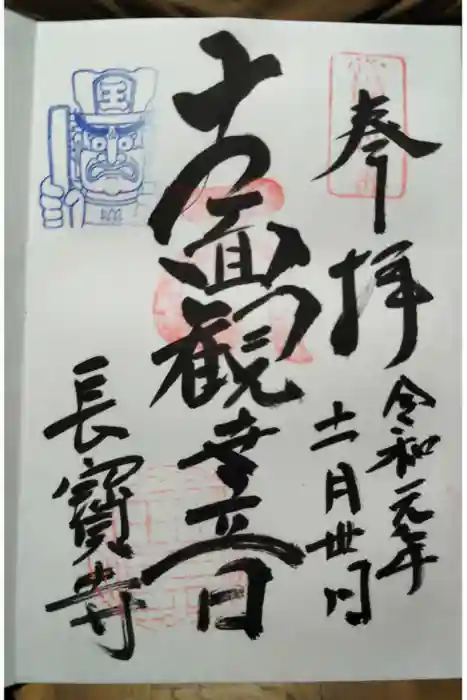 奉拝
令和元年
十一月卅日
十一面観世音
長寳寺
王